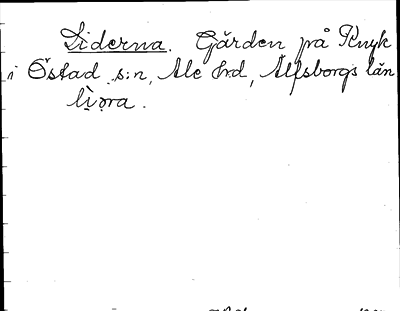 Liderna. Gården på Knyk
i Östad s:n, Ale hrd, Älfsborgs län